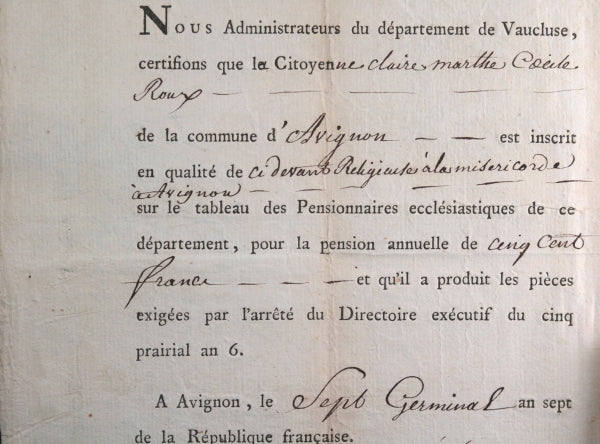 Nous Administrateurs du département de Vaucluse,
certifions que la Citoyenne claire marthe Cecile
Roux
de la commune d'Avignon — — est inscrit
en qualité de ci devant Religieuse à la misericorde
à Avignon
sur le tableau des Pensionnaires ecclésiastiques de ce
département, pour la pension annuelle de cinq cent
franc — — — et qu'il a produit les pièces
exigées par l'arrêté du Directoire exécutif du cinq
prairial an 6.
A Avignon, le Sept Germinal an sept
de la République française.